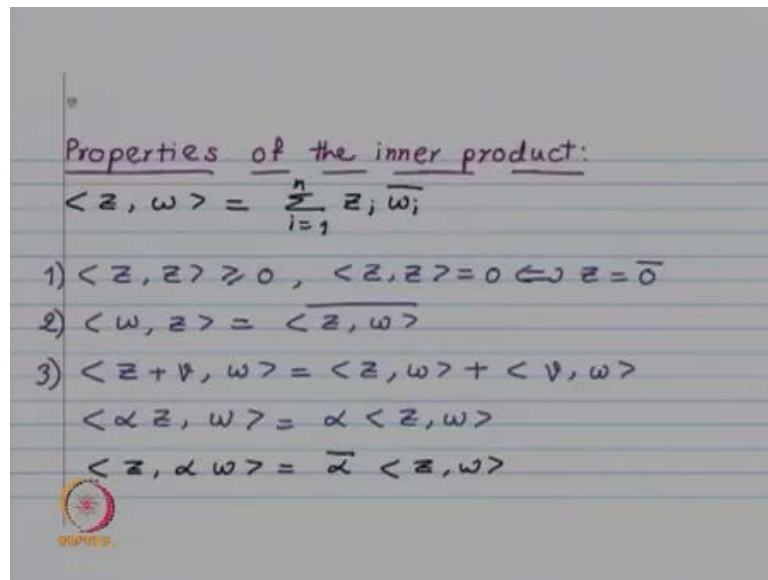 Properties of the inner product:
< z, w > = n Σ i=1 z_i \overline{w_i}
1) < z, z > ⩾ 0 , < z, z > = 0 ⇔ z = \overline{0}
2) < w, z > = \overline{< z, w >}
3) < z + v, w > = < z, w > + < v, w >
< α z, w > = α < z, w >
< z, α w > = \overline{α} < z, w >